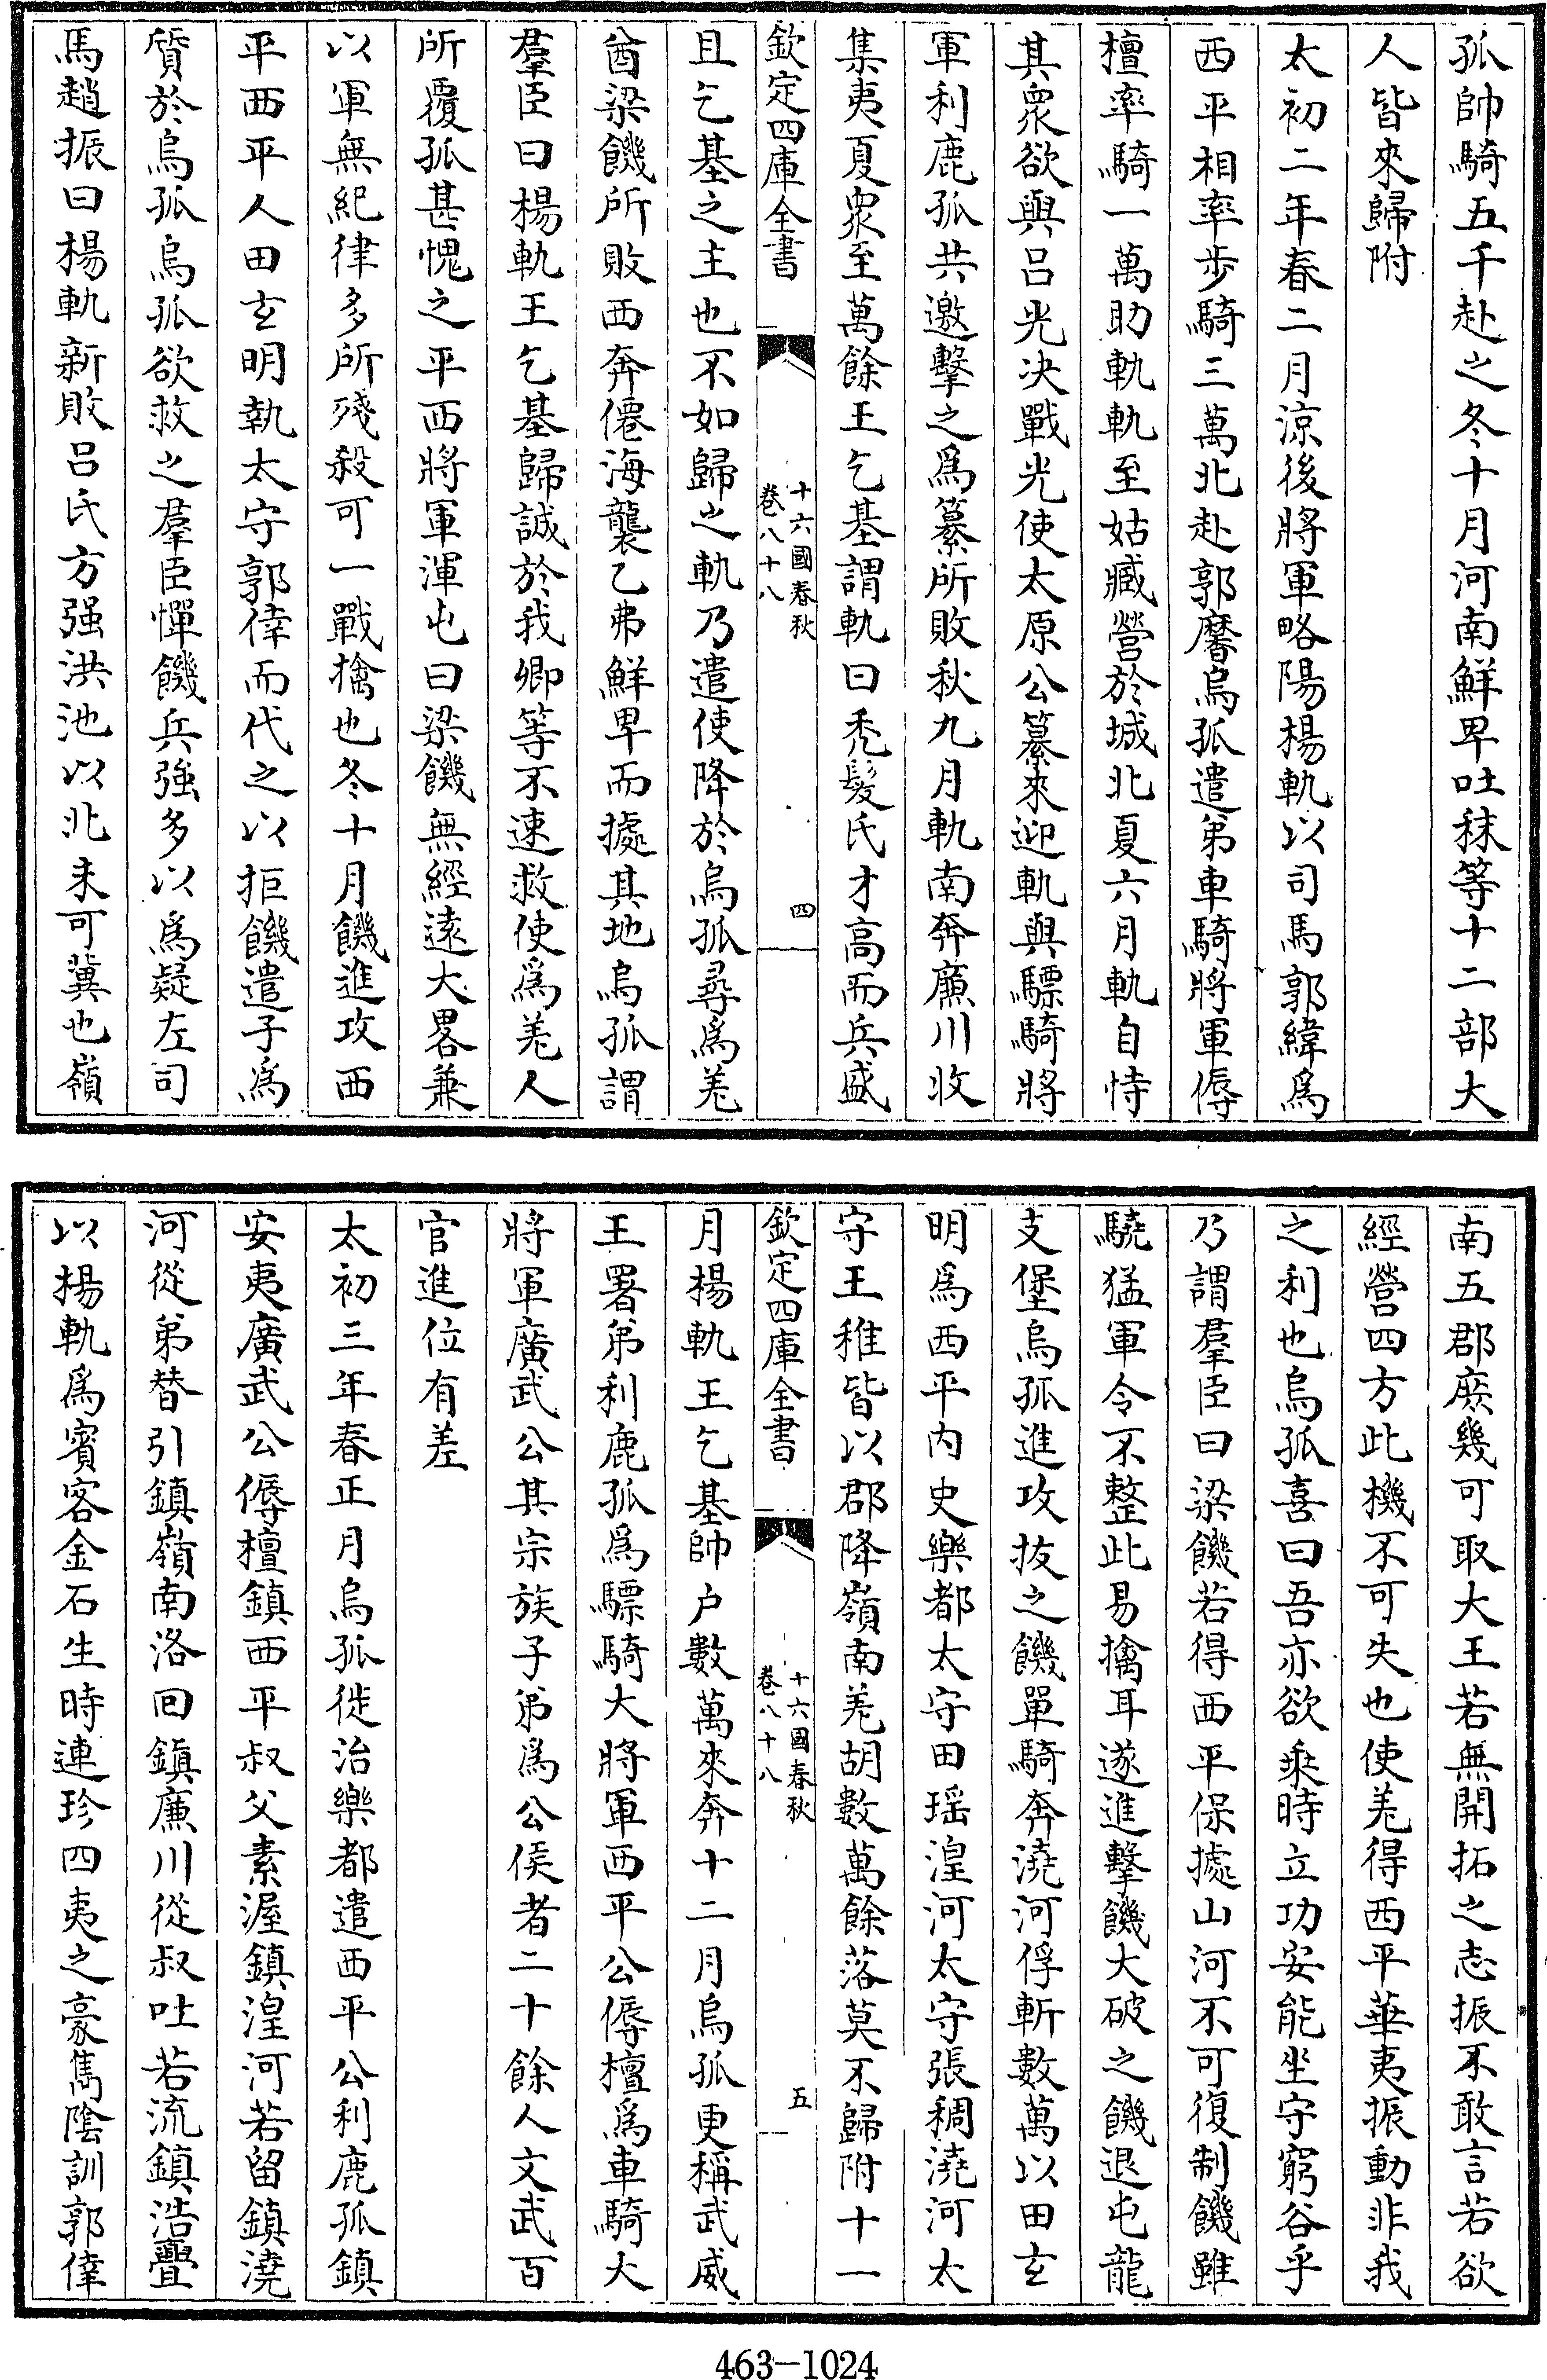 孤帥騎五千赴之冬十月河南鮮卑吐秣等十二部大
人皆來歸附
太初二年春二月涼後將軍略陽楊軌以司馬郭緯為
西平相率步騎三萬北赴郭黁烏孤遣弟車騎將軍傉
檀率騎一萬助軌軌至姑臧營於城北夏六月軌自恃
其衆欲與呂光决戰光使太原公纂來迎軌與驃騎將
軍利鹿孤共邀擊之為纂所敗秋九月軌南奔廉川收
集夷夏衆至萬餘王乞基謂軌曰禿髮氏才高而兵盛
欽定四庫全書
十六國春秋
卷八十八
四
且乞基之主也不如歸之軌乃遣使降於烏孤尋為羌
酋梁饑所敗西奔僊海襲乙弗鮮卑而據其地烏孤謂
羣臣曰楊軌王乞基歸誠於我卿等不速救使為羌人
所覆孤甚愧之平西將軍渾屯曰梁饑無經遠大畧兼
以軍無紀律多所殘殺可一戰擒也冬十月饑進攻西
平西平人田玄明執太守郭倖而代之以拒饑遣子為
質於烏孤烏孤欲救之羣臣憚饑兵強多以為疑左司
馬趙振曰楊軌新敗呂氏方强洪池以北未可冀也嶺
南五郡庶幾可取大王若無開拓之志振不敢言若欲
經營四方此機不可失也使羌得西平華夷振動非我
之利也烏孤喜曰吾亦欲乘時立功安能坐守窮谷乎
乃謂羣臣曰梁饑若得西平保據山河不可復制饑雖
驍猛軍令不整此易擒耳遂進擊饑大破之饑退屯龍
支堡烏孤進攻拔之饑單騎奔澆河俘斬數萬以田玄
明為西平內史樂都太守田瑶湟河太守張稠澆河太
守王稚皆以郡降嶺南羌胡數萬餘落莫不歸附十一
欽定四庫全書
十六國春秋
卷八十八
五
月楊軌王乞基帥户數萬來奔十二月烏孤更稱武威
王署弟利鹿孤為驃騎大將軍西平公傉檀為車騎大
將軍廣武公其宗族子弟為公侯者二十餘人文武百
官進位有差
太初三年春正月烏孤徙治樂都遣西平公利鹿孤鎮
安夷廣武公傉檀鎮西平叔父素渥鎮湟河若留鎮澆
河從弟替引鎮嶺南洛回鎮廉川從叔吐若流鎮浩亹
以楊軌為賓客金石生時連珍四夷之豪雋陰訓郭倖
463-1024